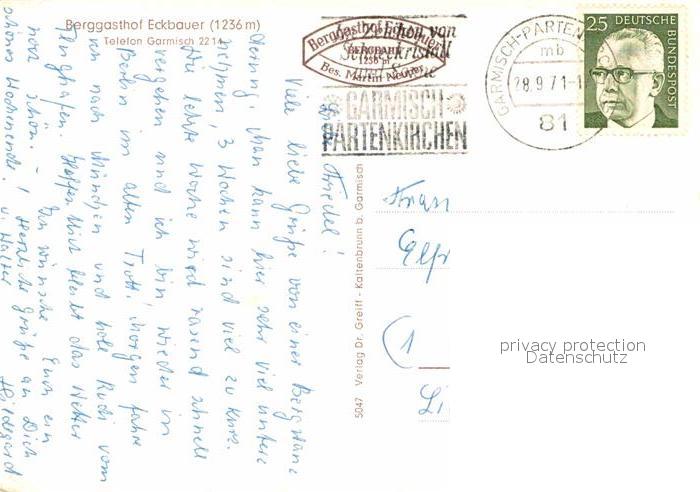 Berggasthof Eckbauer (1236 m)
Telefon Garmisch 2214
Berggasthof Eckbauer
BERGBAHN
1236 m
Bes. Martin Neuner
von
GARMISCH
PARTENKIRCHEN
GARMISCH-PARTENKIRCHEN
mb
28.9.71-1
81
25 DEUTSCHE
BUNDESPOST
5047 Verlag Dr. Greiff - Kaltenbrunn b. Garmisch
Friedel!
Viele liebe Grüße von einer Bergwan-
derung. Man kann hier sehr viel unter-
nehmen, 3 Wochen sind viel zu kurz.
Die letzte Woche wird rasend schnell
vergehen und ich bin wieder in
Berlin im alten Trott. Morgen fahre
ich nach München und hole Rudi vom
Flughafen. Hoffentlich bleibt das Wetter
noch schön. - Ich wünsche Euch ein
schönes Wochenende. Herzliche Grüße an Dich
u. Walter Hildegard
Frau
Elfr
(1
Li
privacy protection
Datenschutz